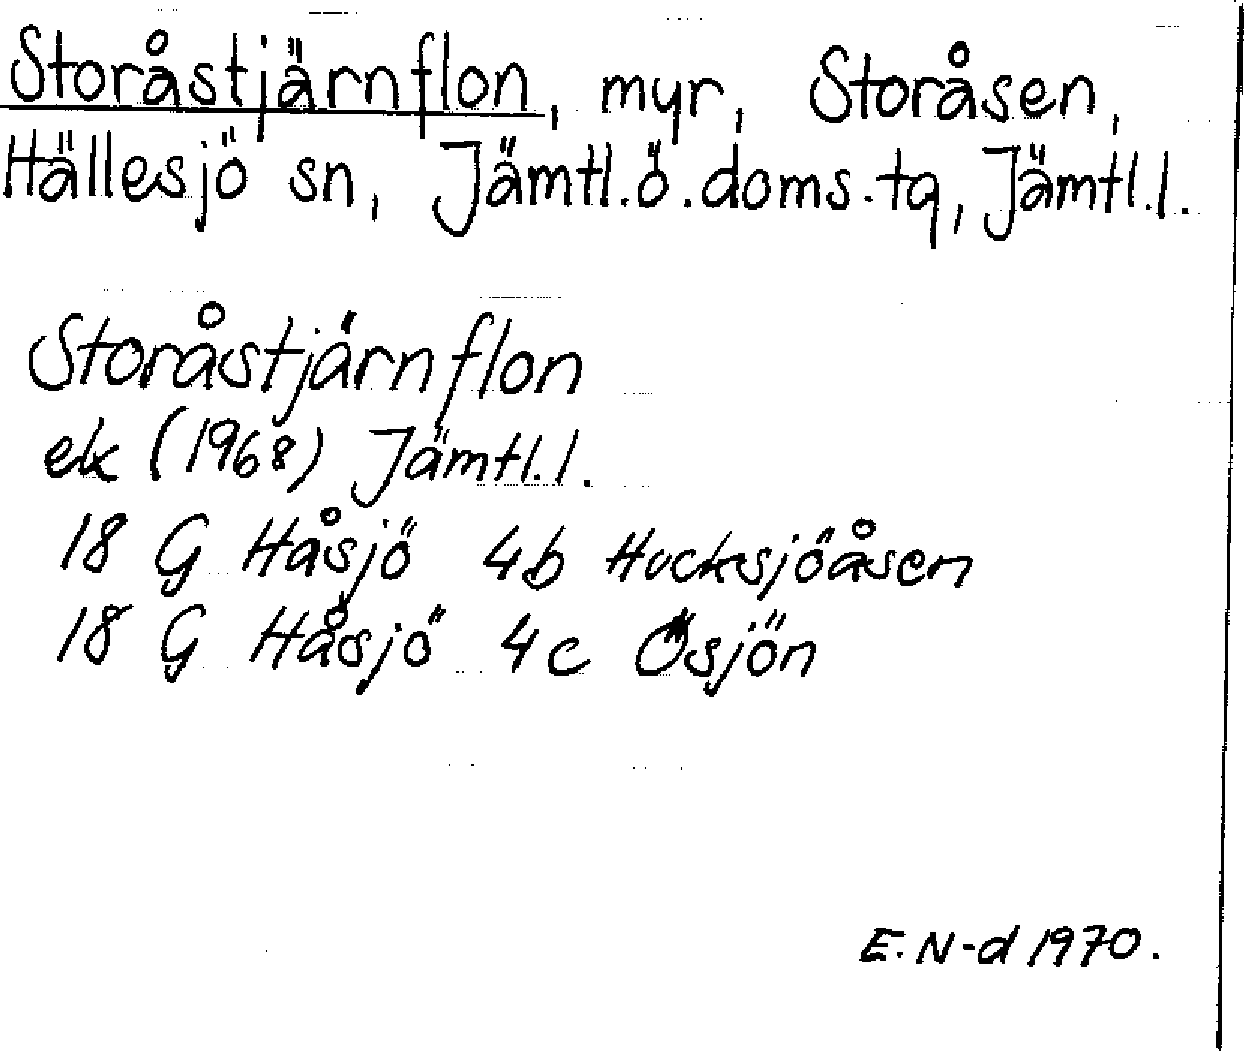 Storåstjärnflon, myr, Storåsen,
Hällesjö sn, Jämtl.ö.doms.tg, Jämtl.l.
Storåstjärnflon
ek (1968) Jämtl.l.
18 G Håsjö 4b Hucksjöåsen
18 G Håsjö 4c Ösjön
E.N-d 1970.